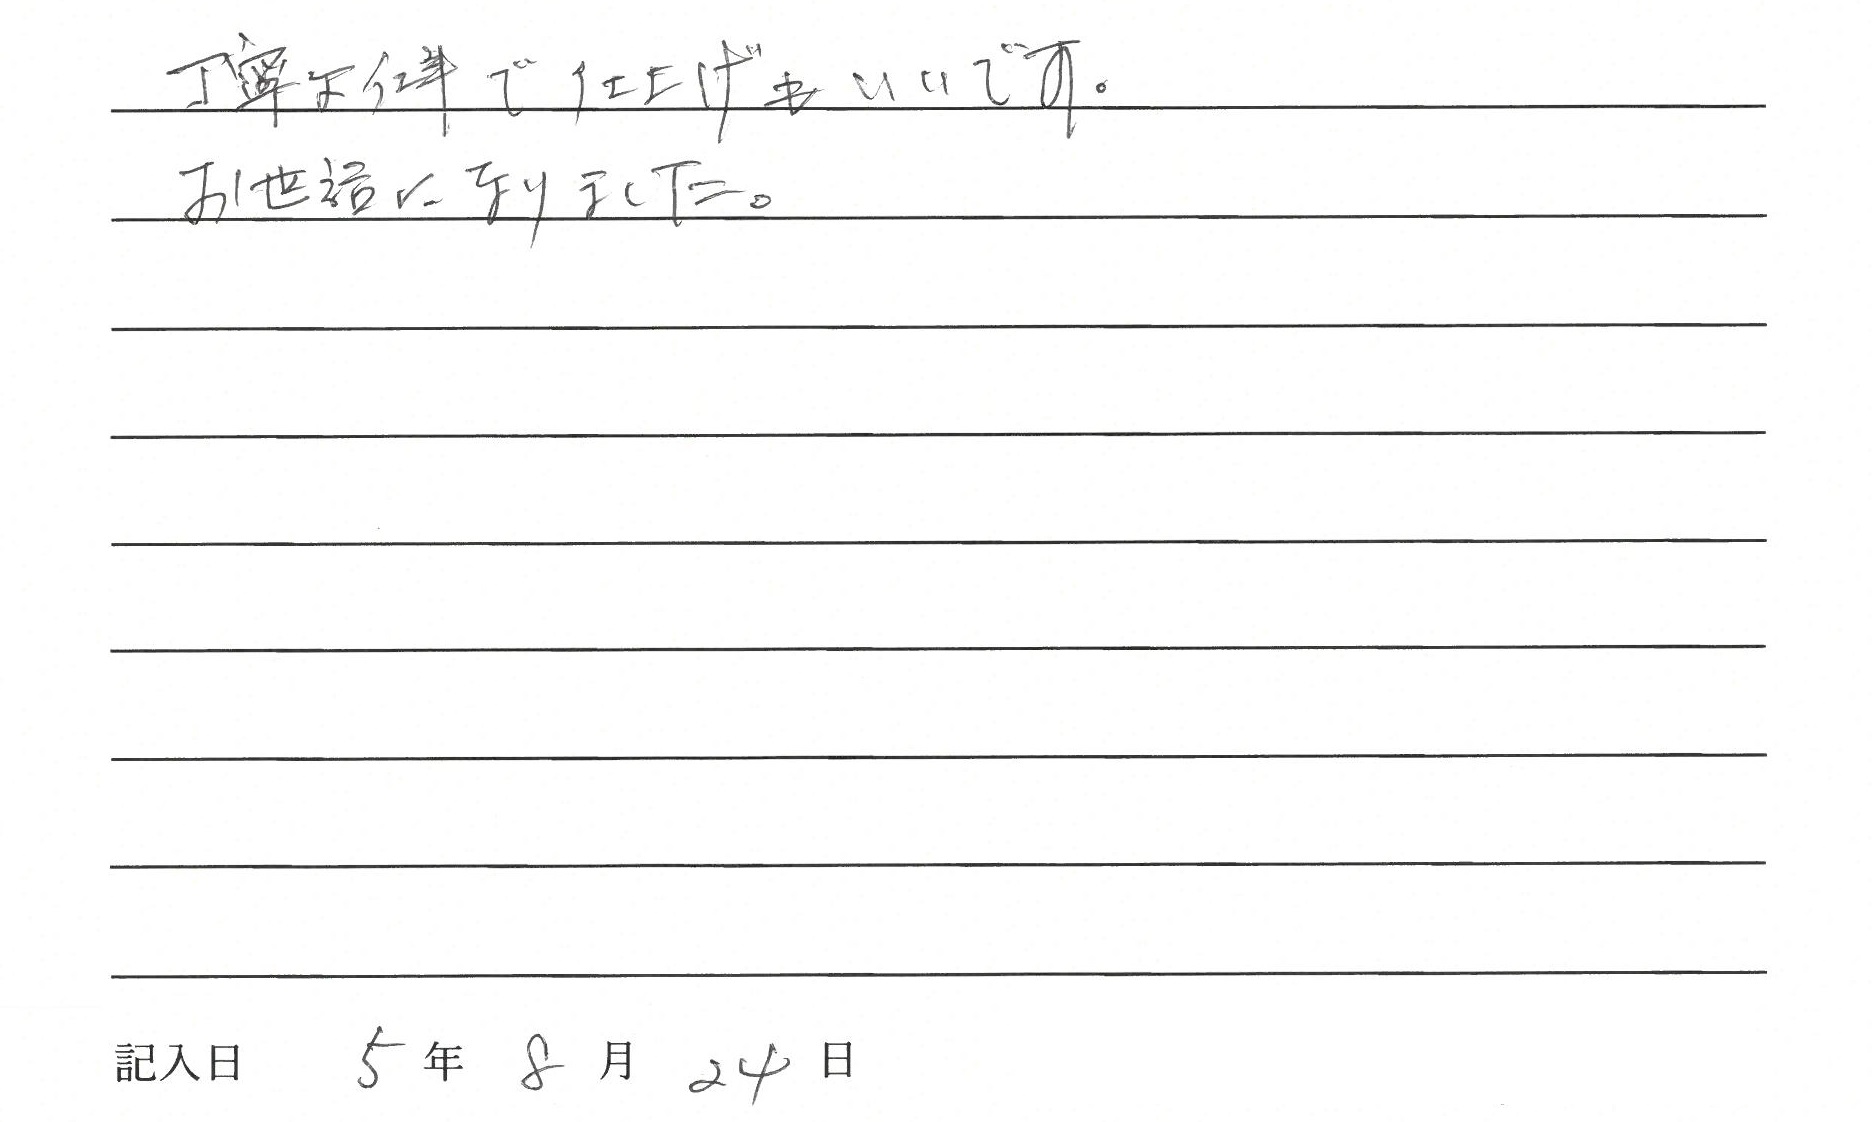 丁寧な仕事で仕上げもいいです。
お世話になりました。
記入日 5年 8月 24日